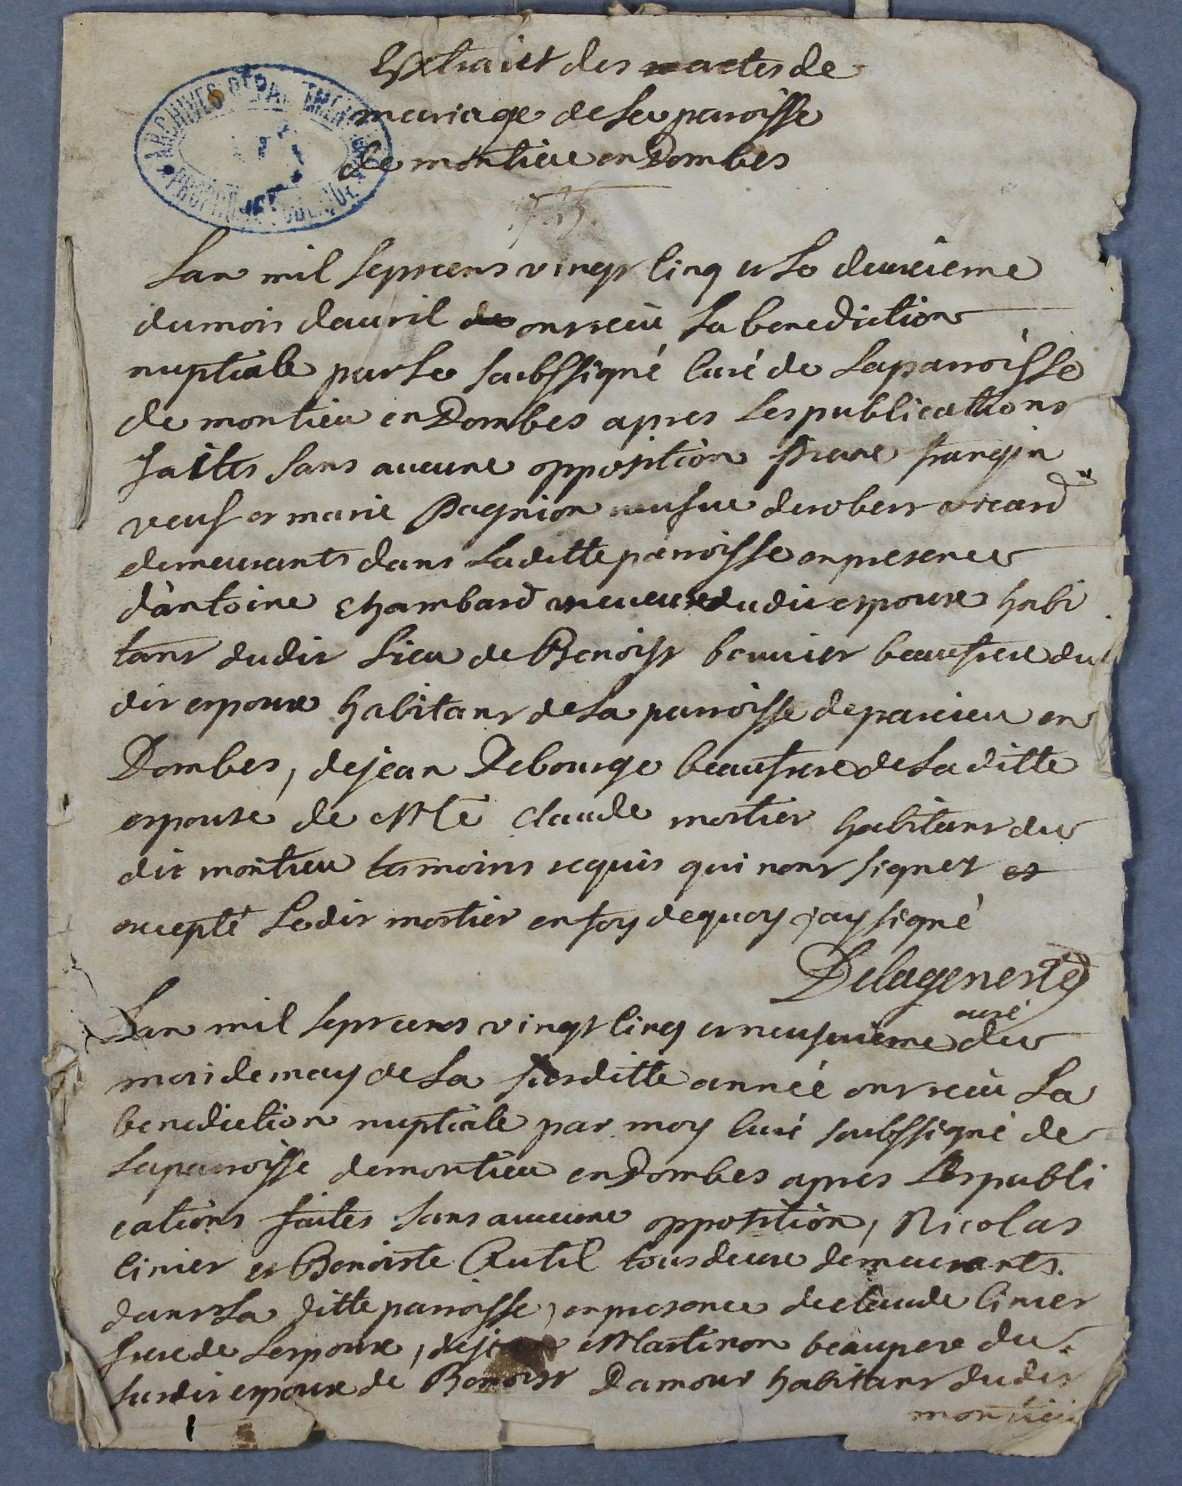 Extraict des actes de
mariage de la paroisse
de montieu en Dombes
1725.
ARCHIVES DÉPARTEMENTALES
PROPRIÉTÉ PUBLIQUE
Lan mil sept cens vingt cinq et le deuxieme
du mois dauril ont receu la benediction
nuptiale par le soubssigné curé de la parroisse
de montieu en Dombes apres les publications
faites sans aucune opposition pierre frangin
veuf et marie Pagnion veufue de robert vicard
demeurants dans la ditte parroisse en presence
d'antoine Chambard dudit espoux habi
tant dudit lieu de Benoist bouuier beaufrere du
dit espoux habitant de la parroisse de parcieu en
Dombes, de jean Debourge beaufrere de la ditte
espouse de Mre Claude mortier habitans du
dit montieu temoins requis qui nont signer et
excepté ledit mortier en foy de quoy jay signé
Delageneste
curé
Lan mil sept cens vingt cinq et neufuieme du
moi de may de la susditte année ont receu la
benediction nuptiale par moy curé soubssigné de
la parroisse de montieu en Dombes apres les publi
cations faites sans aucune opposition, Nicolas
linier et Benoiste Autil tous deux demeurants
dans la ditte parroisse, en presence de claude linier
frere de lespoux, de jean Martinon beaupere du
susdit espoux de Benoist Damour habitans dudit
montieu